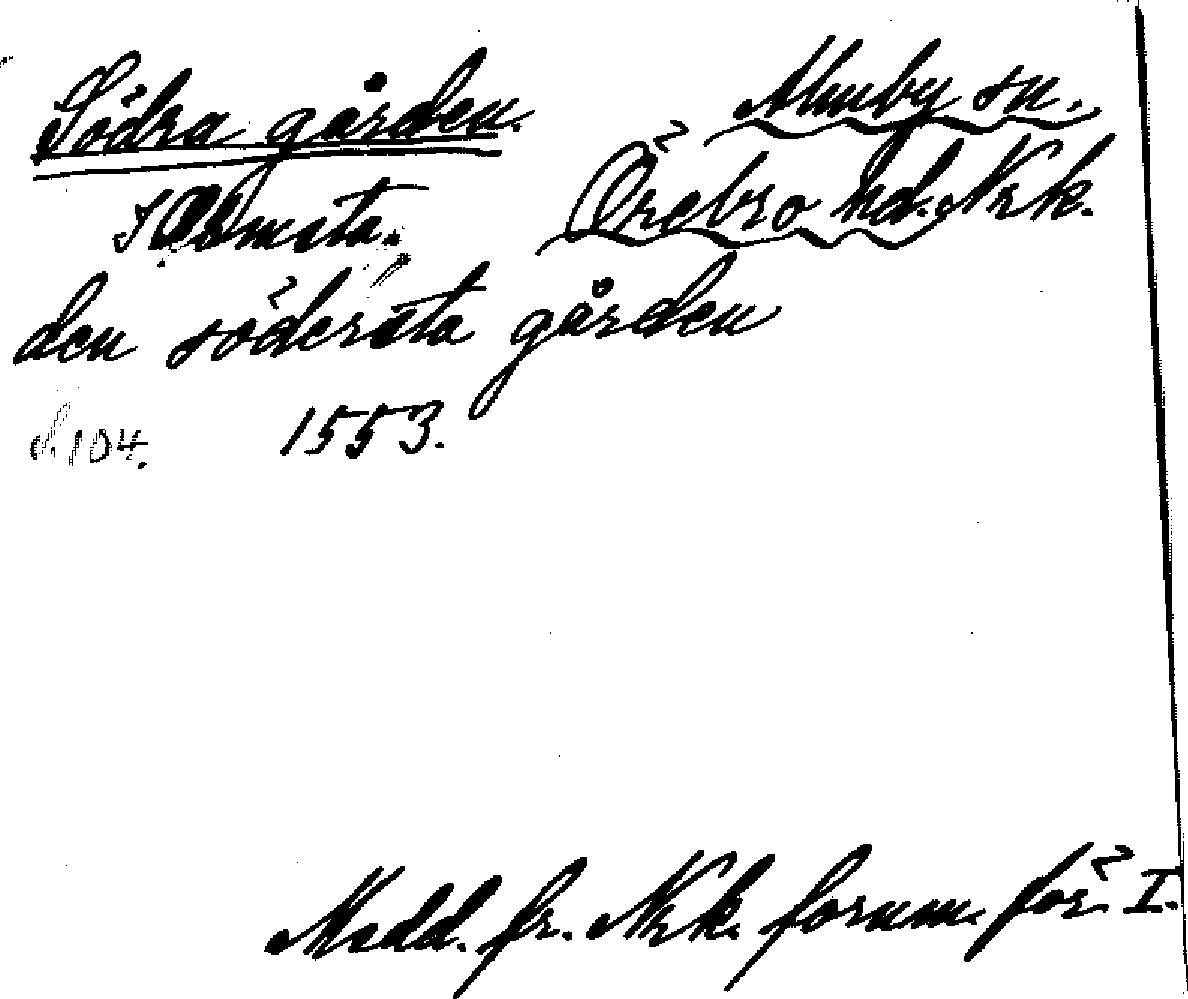 Södra gården. Almby sn.
Örebro hd. Nrk.
den södersta gården
s. 104. 1553.
Medd. fr. Nrk. fornm. för. I.